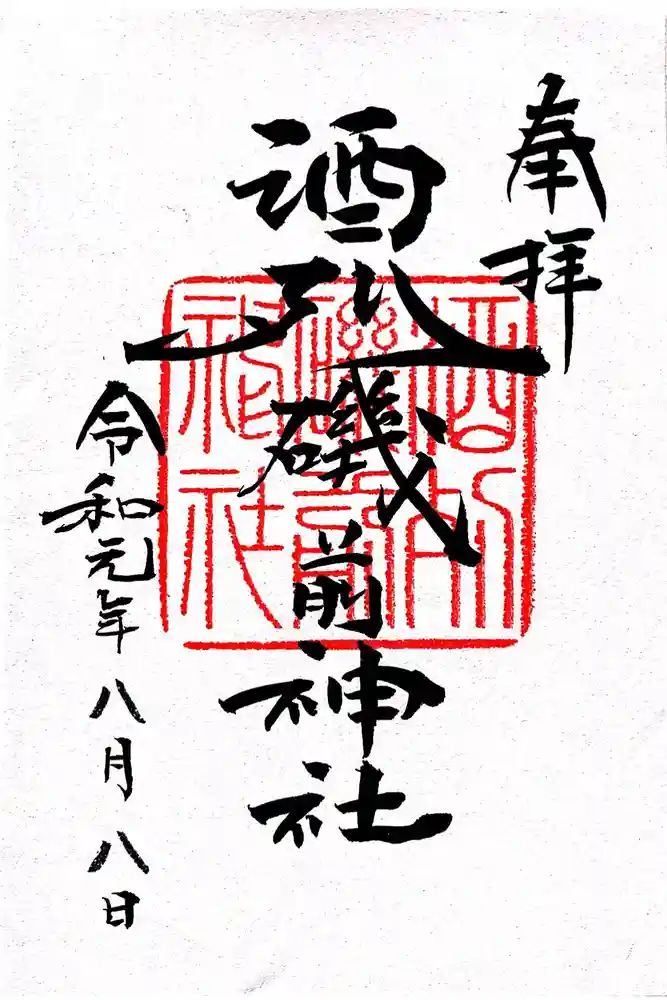 奉拝
酒列磯前神社
令和元年八月八日
酒列
磯前
神社